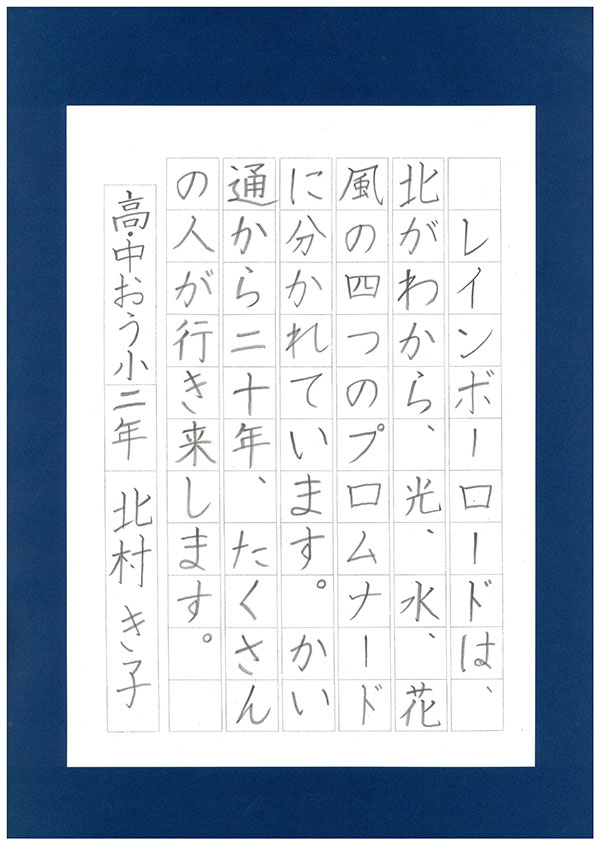 レインボーロードは、
北がわから、光、水、花
風の四つのプロムナード
に分かれています。かい
通から二十年、たくさん
の人が行き来します。
高・中おう小二年 北村 き子